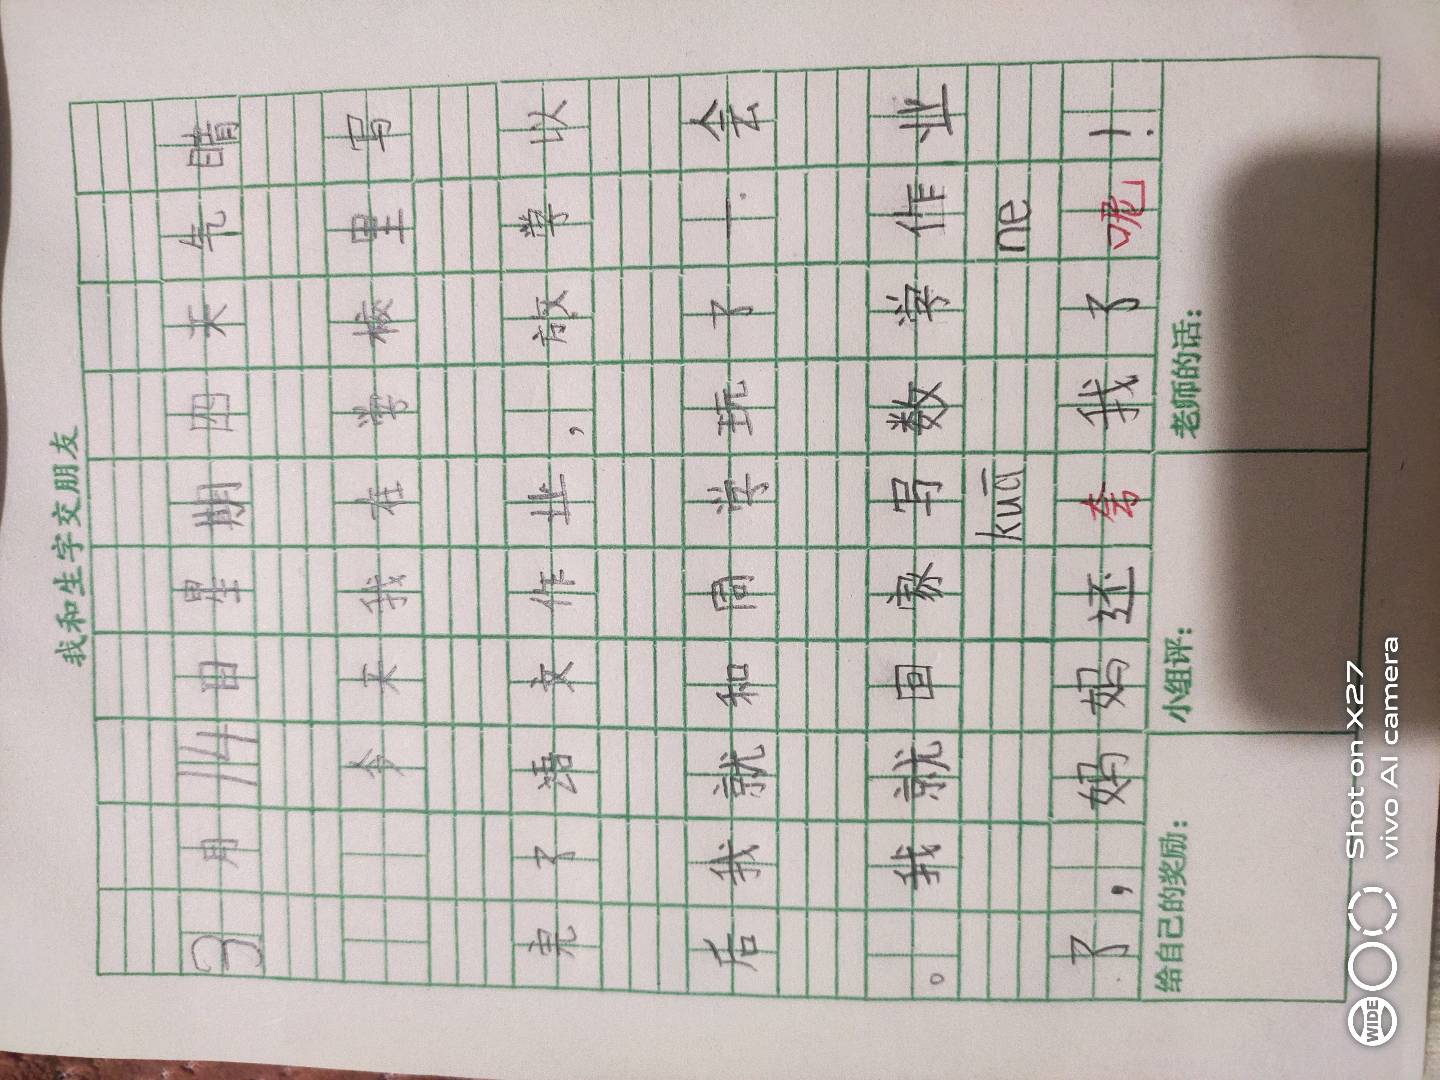 我和生字交朋友
3月14日星期四天气晴
今天我在学校里写
完了语文作业，放学以
后我就和同学玩了一会
。我就回家写数学作业
kuā ne
了，妈妈还夸我了呢！
给自己的奖励： 小组评： 老师的话：
WIDE
Shot on X27
vivo AI camera